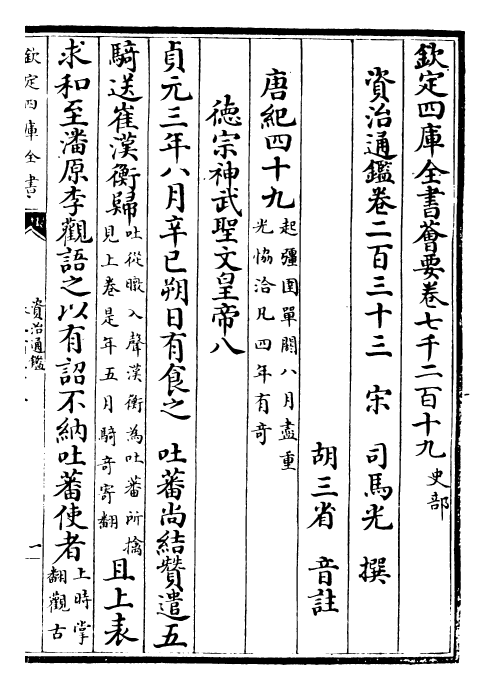 欽定四庫全書薈要卷七千二百十九 史部
資治通鑑卷二百三十三 宋 司馬光 撰
胡三省 音註
唐紀四十九 起彊圉單閼八月盡重
光協洽凡四年有奇
德宗神武聖文皇帝八
貞元三年八月辛巳朔日有食之 吐蕃尚結贊遣五
騎送崔漢衡歸 吐從暾入聲漢衡為吐蕃所擒
見上卷是年五月騎奇寄翻 且上表
求和至潘原李觀語之以有詔不納吐蕃使者 上時掌
翻觀古
欽定四庫全書
資治通鑑
一